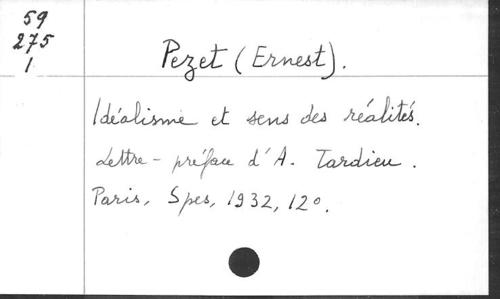 59
275
1
Pezet (Ernest).
Idéalisme et sens des réalités.
Lettre-préface d'A. Tardieu.
Paris, Spes, 1932, 12°.